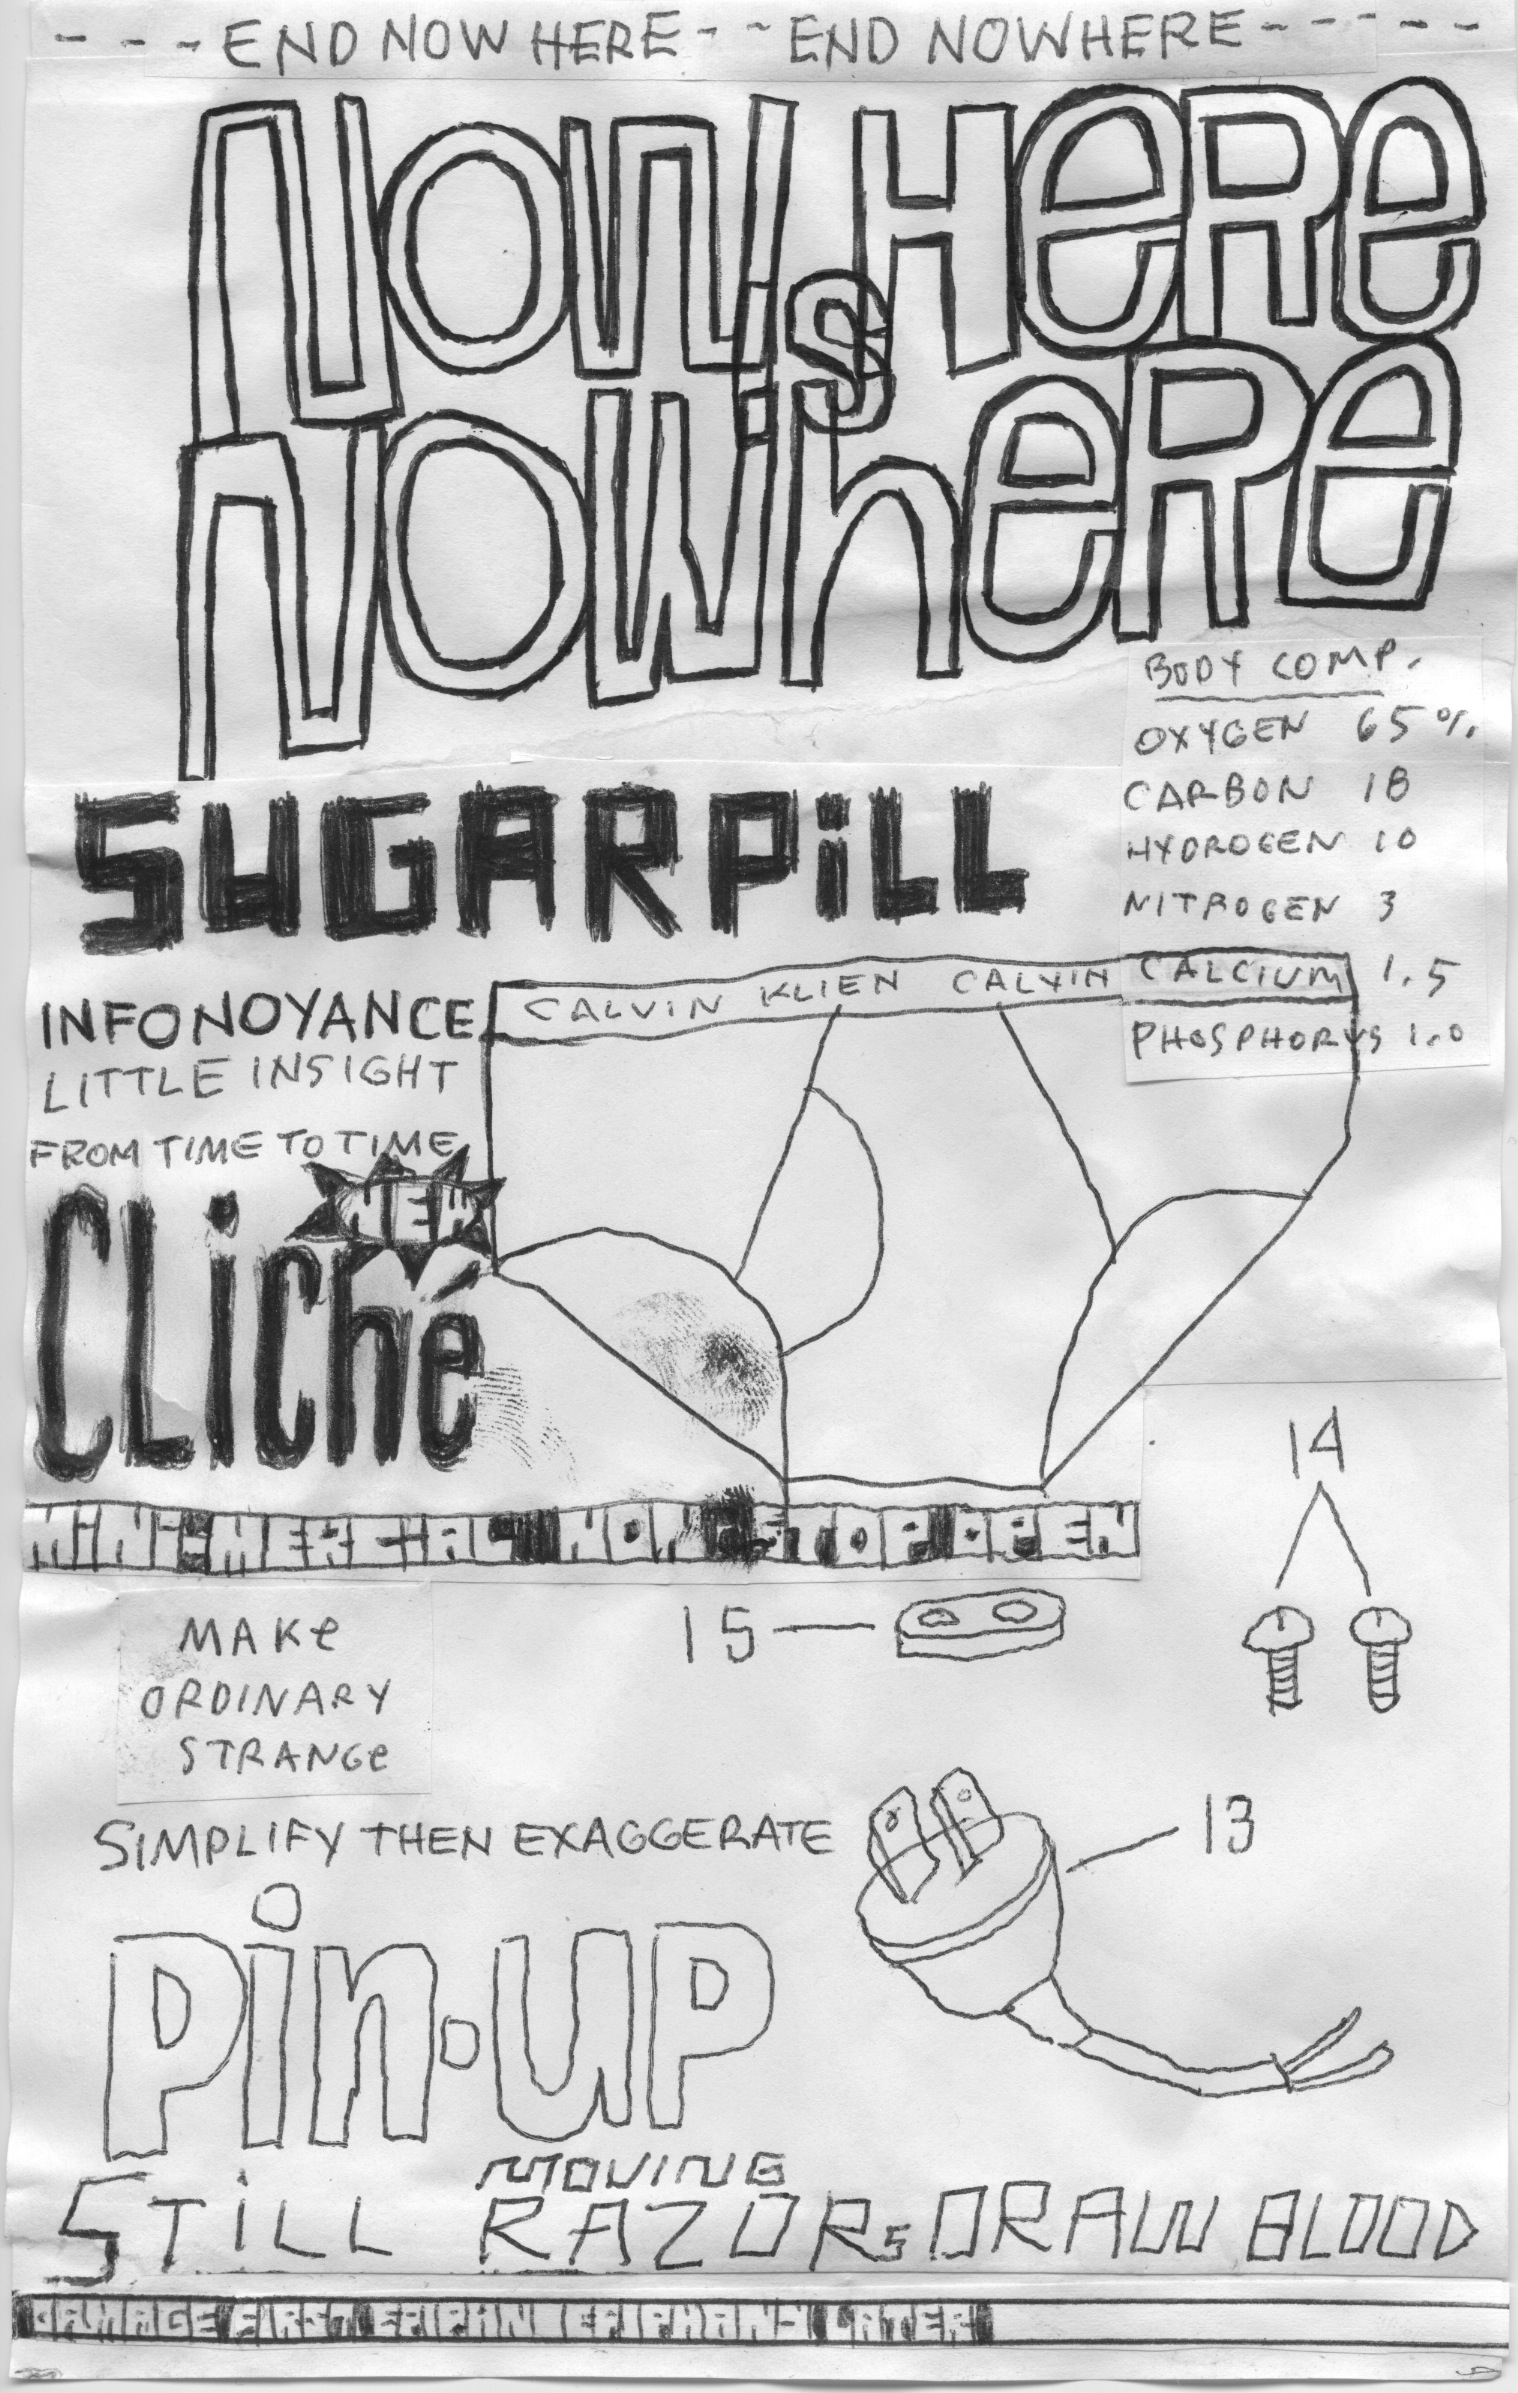 - - - - END NOW HERE - - END NOWHERE - - - - - -
NOW HERE
is
NOWHERE
BODY COMP.
OXYGEN 65%
CARBON 18
HYDROGEN 10
NITROGEN 3
CALCIUM 1.5
PHOSPHORUS 1.0
SUGARPiLL
CALVIN KLIEN CALVIN
INFONOYANCE
LITTLE INSIGHT
FROM TIME TO TIME
NEW
CLiché
NON STOP OPEN
14
15
MAKe
ORDINARY
STRANGe
SIMPLIFY THEN EXAGGERATE
13
Pin·UP
MOVING
STiLL RAZORs DRAW BLOOD
DAMAGE FIRST EPIPHANY LATER